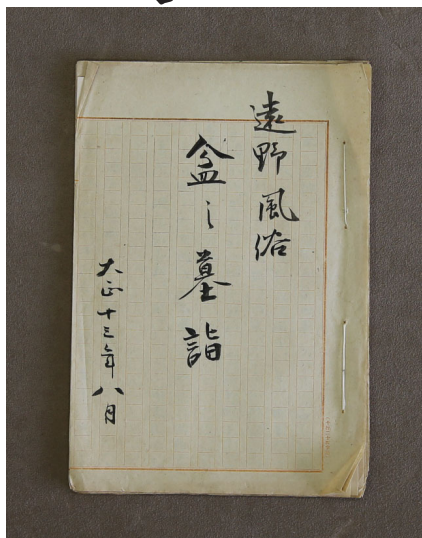 遠野風俗
盆之墓詣
大正十三年八月